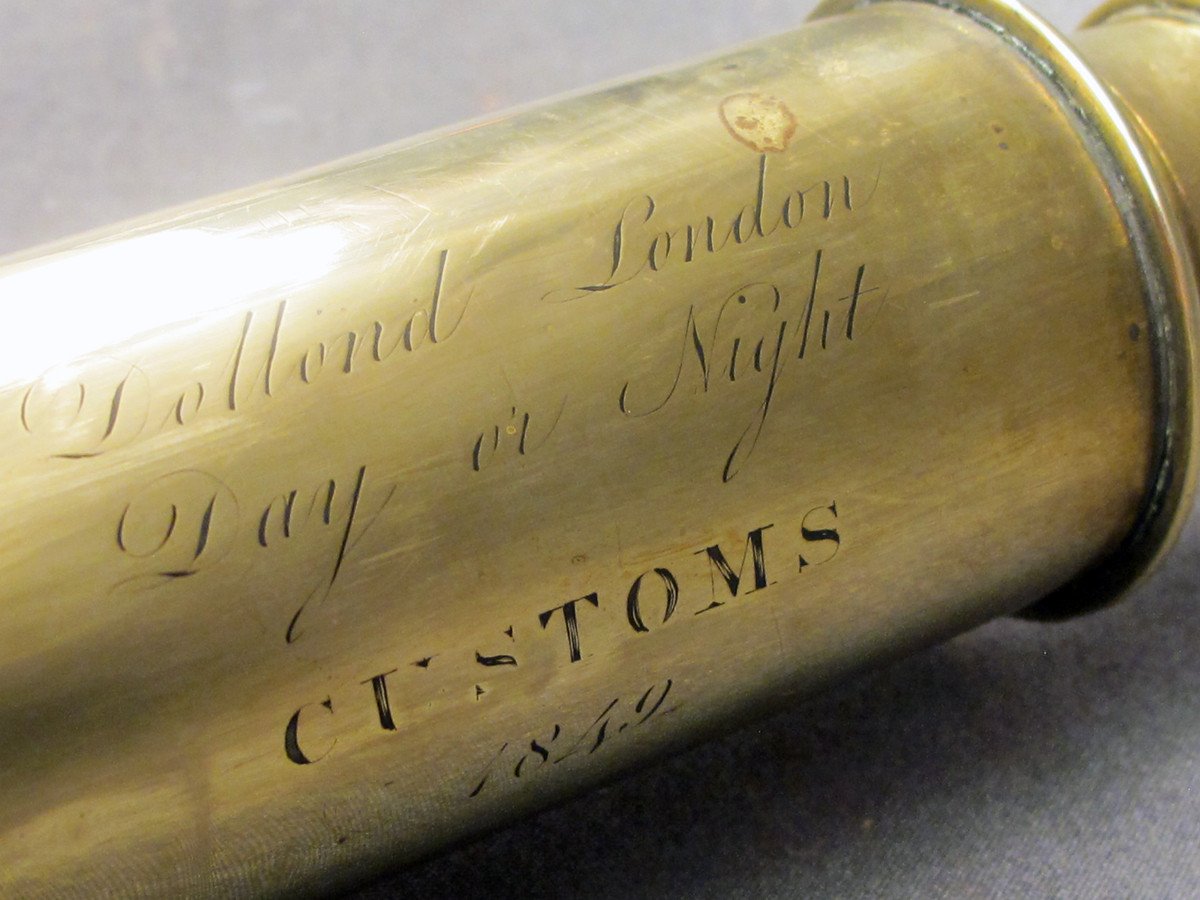 Dollond London
Day or Night
CUSTOMS
1849